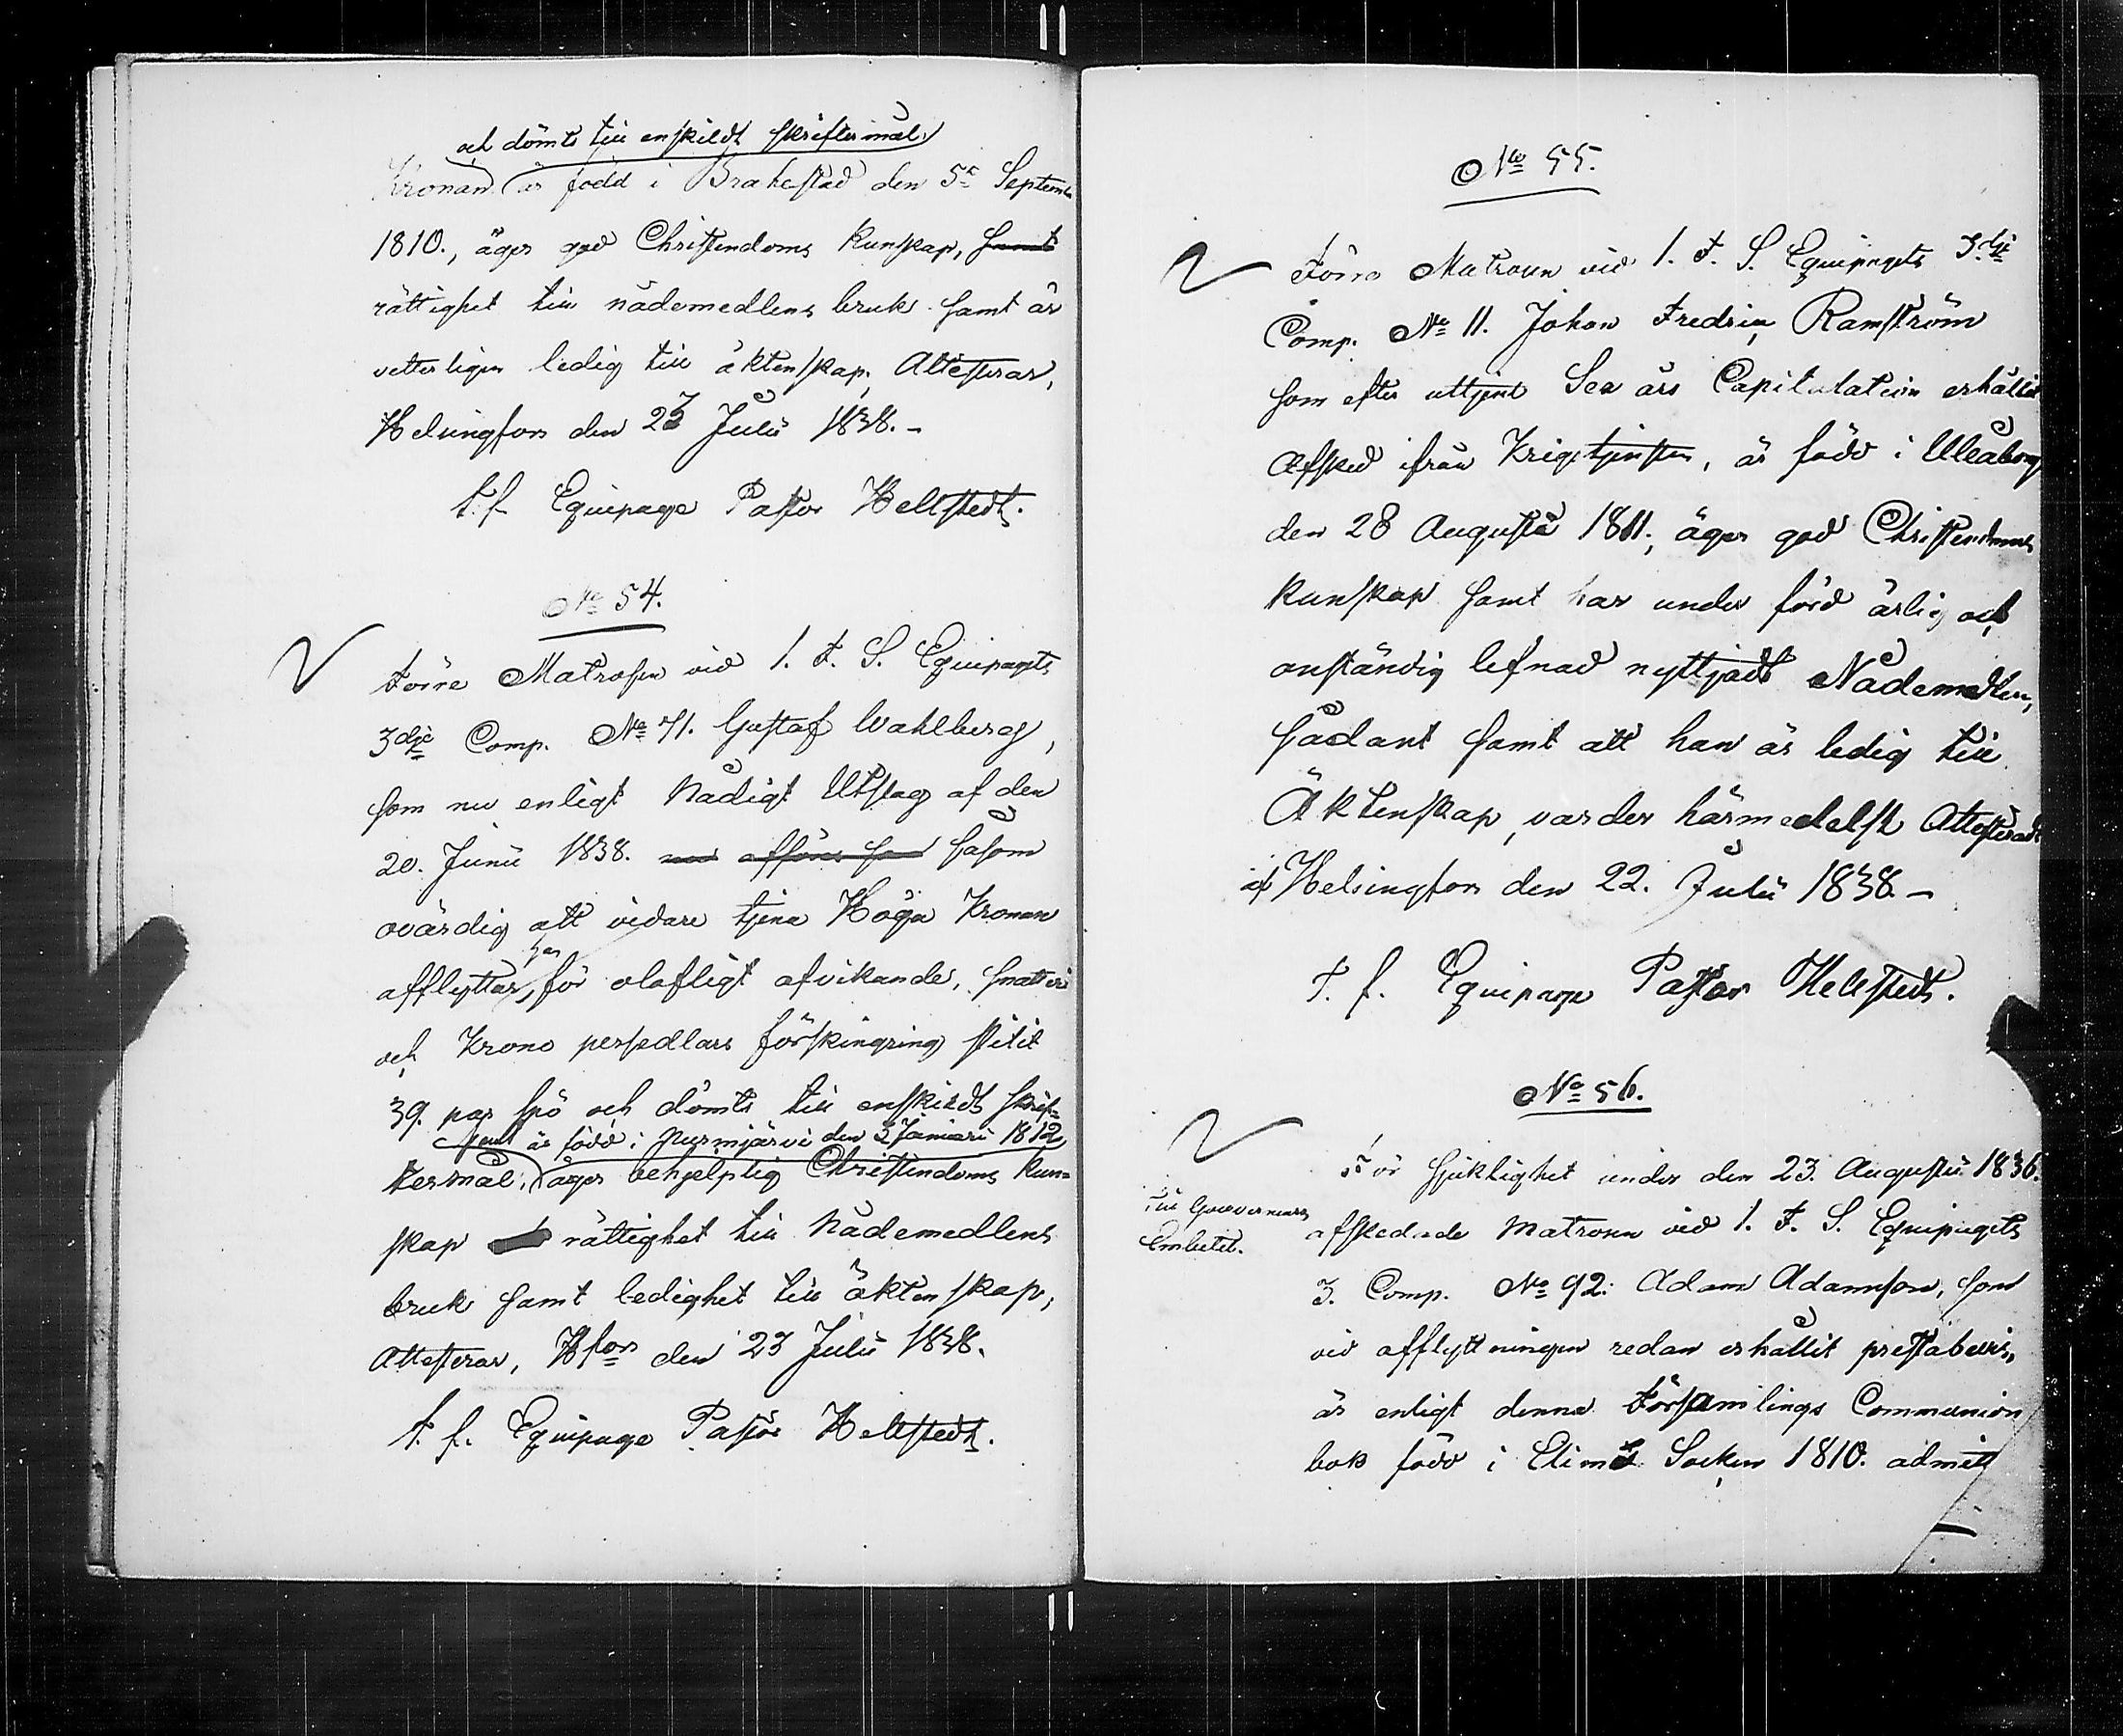 och dömts till enskildt skriftermål
Kronan är född i Brahestad den 5te Septemb
1810., äger god Christendoms kunskap, samt
rättighet till nådemedlens bruk samt är
vetterligen ledig till äktenskap; Attesterar,
Helsingfors den 23 Julii 1838.-
t.f. Equipage Pastor Hellstedt.
No 54.
Förre Matrosen vid 1. F. S. Equipagets
3dje Comp. No 71. Gustaf Wahlberg,
som nu enligt Nådigt Utslag af den
20. Junii 1838. såsom
ovärdig att vidare tjena Höga Kronan
har
afflyttar, för olofligt afvikande, snatteri
och Krono persedlars förskingring slitit
39. par spö och dömts till enskildt skrif-
samt är född i Nurmijärvi den 3 Januarii 1812
termål; äger behjelplig Christendoms kun-
skap rättighet till Nådemedlens
bruk samt ledighet till äktenskap,
Attesterar, Hfors den 23 Julii 1838.
t. f. Equipage Pastor Hellstedt.
No 55.
Förre Matrosen vid 1. F. S. Equipagets 3dje
Comp. No 11. Johan Fredric Ramström
som efter uttjent Sex års Capitulation erhållit
Afsked ifrån Krigstjensten, är född i Uleåborg
den 28 Augusti 1811., äger god Christendoms
kunskap samt har under förd ärlig och
anständig lefnad nyttjadt Nådemedlen,
Sådant samt att han är ledig till
Äktenskap, varder härmedelst Attesteradt
af Helsingfors den 22. Julii 1838.-
T. f. Equipage Pastor Hellstedt.
No 56.
För sjuklighet under den 23. Augusti 1836.
Till Gouverneurs
Embetet.
afskedade Matrosen vid 1. F. S. Equipagets
3. Comp. No 92. Adam Adamsson, som
vid afflyttningen redan erhållit prestabevis,
är enligt denna Församlings Communion
bok född i Elimä Socken 1810. admitt